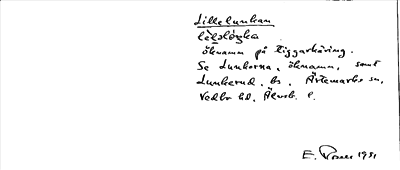 Lillelunkan
öknamn på tiggarkäring.
Se Lunkorna, öknamn, samt
Lunkerud, bs, Ärtemarks sn,
Vedbo hd, Älvsb. l.
E. 1951